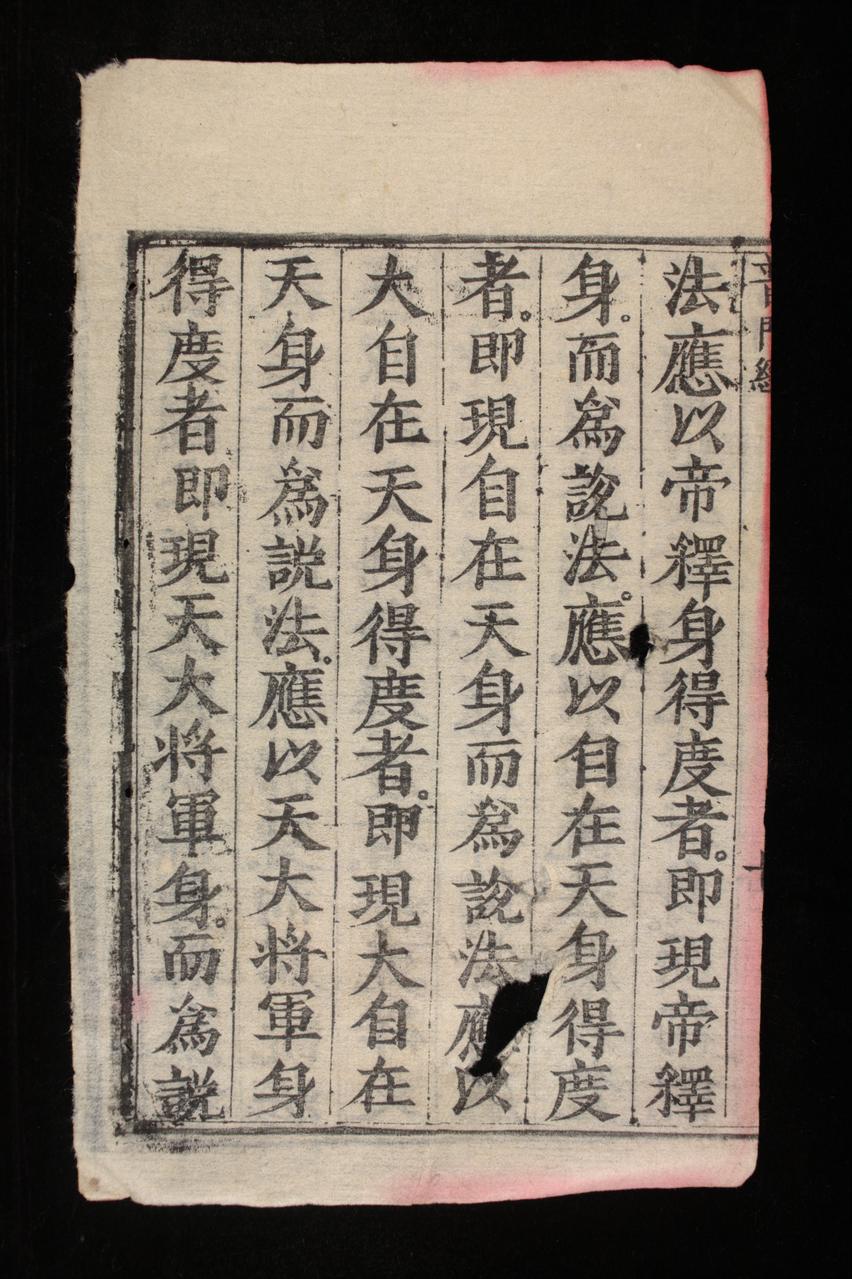 普門經
法應以帝釋身得度者。即現帝釋
身。而爲說法。應以自在天身得度
者。即現自在天身而爲說法應以
大自在天身得度者。即現大自在
天身而爲説法。應以天大將軍身
得度者即現天大將軍身。而爲説